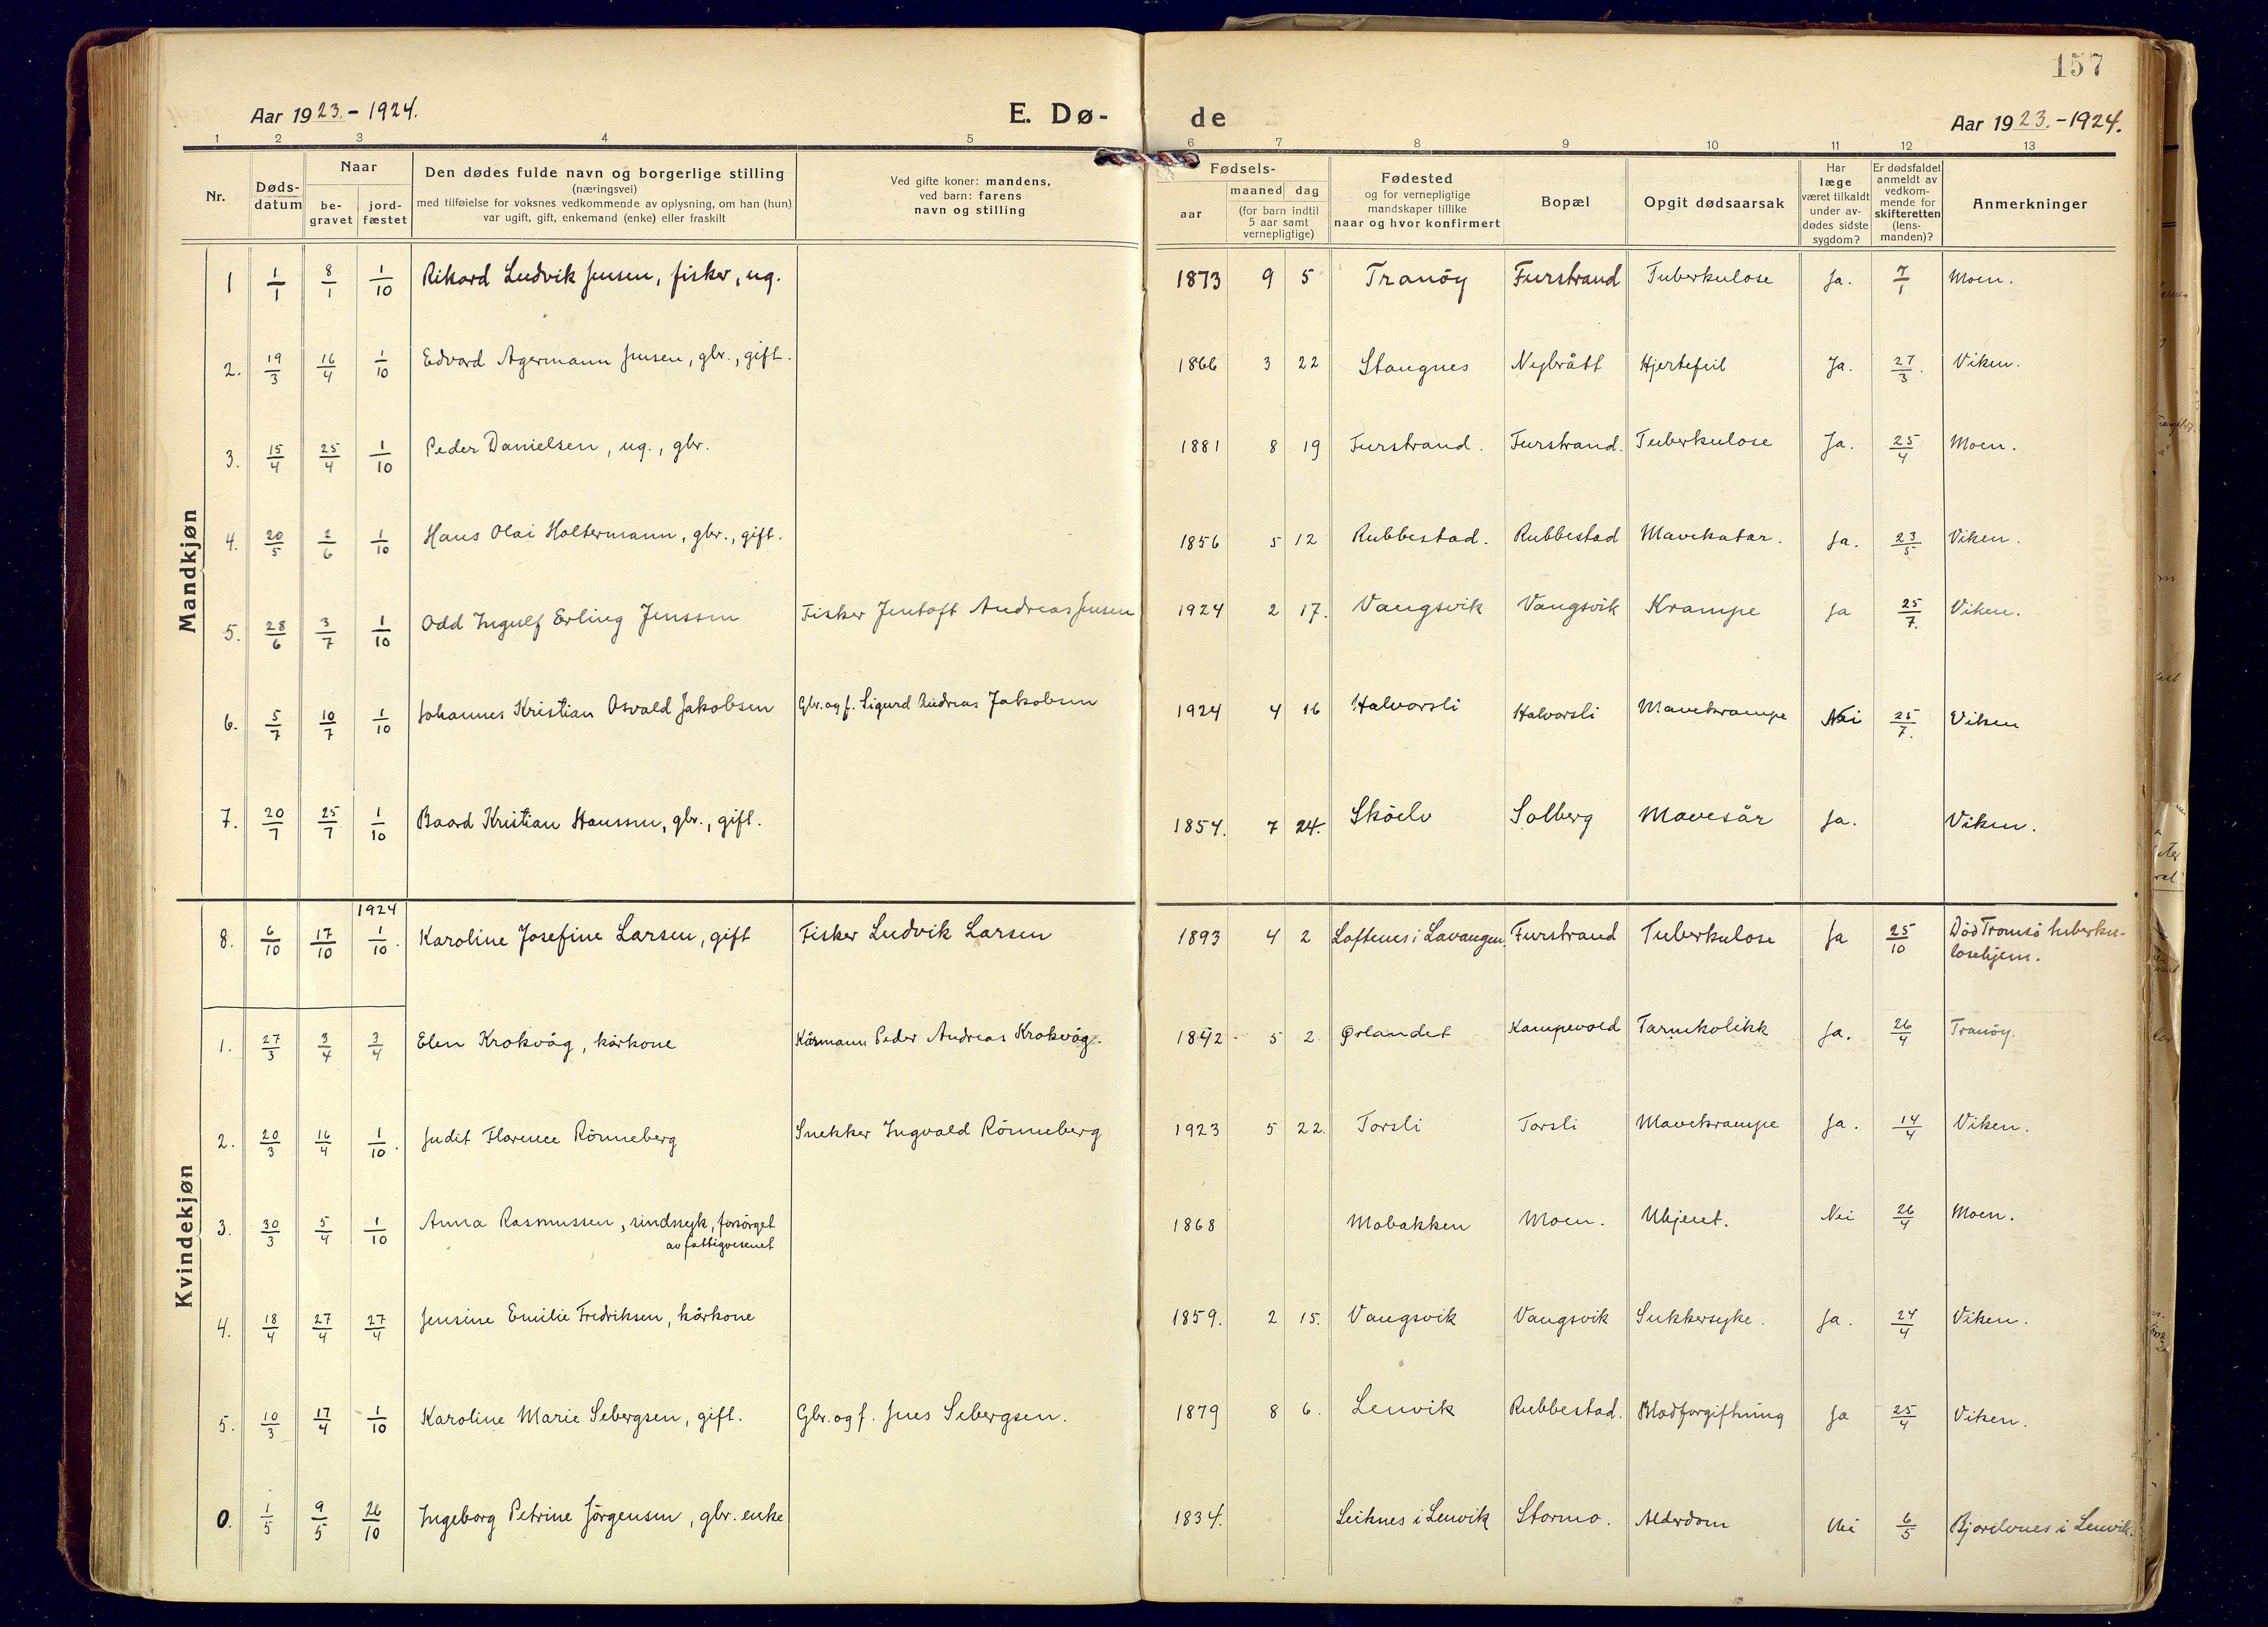 157
Aar 1923.-1924.
E. Dø-
de
Aar 1923.-1924.
1 2 3 4 5 6 7 8 9 10 11 12 13
Nr.
Døds-
datum
Naar
be-
gravet
jord-
fæstet
Den dødes fulde navn og borgerlige stilling
(næringsvei)
med tilføielse for voksnes vedkommende av oplysning, om han (hun)
var ugift, gift, enkemand (enke) eller fraskilt
Ved gifte koner: mandens,
ved barn: farens
navn og stilling
Fødsels-
aar
maaned dag
(for barn indtil
5 aar samt
vernepligtige)
Fødested
og for vernepligtige
mandskaper tillike
naar og hvor konfirmert
Bopæl
Opgit dødsaarsak
Har
læge
været tilkaldt
under av-
dødes sidste
sygdom?
Er dødsfaldet
anmeldt av
vedkom-
mende for
skifteretten
(lens-
manden)?
Anmerkninger
Mandkjøn
1 1/1 8/1 1/10 Rikard Ludvik Jensen, fisker, ug. 1873 9 5 Tranöy Furstrand Tuberkulose Ja. 7/1 Moen.
2. 19/3 16/4 1/10 Edvard Agermann Jensen, gbr., gift. 1866 3 22 Stangnes Nybrått Hjertefeil Ja. 27/3. Viken.
3. 15/4 25/4 1/10 Peder Danielsen, ug., gbr. 1881 8 19 Furstrand. Furstrand. Tuberkulose Ja. 25/4 Moen.
4. 20/5 2/6 1/10 Hans Olai Holtermann, gbr., gift. 1856 5 12 Rubbestad. Rubbestad Mavekatar. Ja. 23/5 Viken.
5. 28/6 3/7 1/10 Odd Ingulf Erling Jenssen Fisker Jentoft Andreas Jensen 1924 2 17. Vangsvik Vangsvik Krampe Ja 25/7. Viken.
6. 5/7 10/7 1/10 Johannes Kristian Osvald Jakobsen Gbr. og f. Sigurd Andreas Jakobsen 1924 4 16 Halvorsli Halvorsli Mavekrampe Nei 25/7. Viken
7. 20/7 25/7 1/10 Baard Kristian Hanssen, gbr., gift. 1854. 7 24. Sköelv Solberg Mavesår Ja. Viken.
1924
8. 6/10 17/10 1/10. Karoline Josefine Larsen, gift Fisker Ludvik Larsen 1893 4 2 Loftenes i Lavangen. Furstrand Tuberkulose Ja 25/10 Död Tromsö tuberku-
losehjem.
Kvindekjøn
1. 27/3 3/4 3/4 Elen Krokvåg, kårkone Kårmann Peder Andreas Krokvåg. 1842 5 2 Ørlandet Kampevold Tarmkolikk Ja. 26/4 Tranöy.
2. 20/3 16/4 1/10. Judit Florence Rönneberg Snekker Ingvald Rönneberg 1923 5 22. Torsli Torsli Mavekrampe Ja. 14/4 Viken.
3. 30/3 5/4 1/10 Anna Rasmussen, sindssyk, forsörget
av fattigvesenet 1868 Mobakken Moen. Ukjent. Nei 26/4 Moen.
4. 18/4 27/4 27/4 Jensine Emilie Fredriksen, kårkone 1859. 2 15. Vangsvik Vangsvik Sukkersyke. Ja. 24/4 Viken.
5. 10/3 17/4 1/10 Karoline Marie Sebergsen, gift. Gbr. og f. Jens Sebergsen. 1879 8 6. Lenvik Rubbestad. Blodforgiftning Ja 25/4 Viken.
0. 1/5 9/5 26/10 Ingeborg Petrine Jörgensen, gbr. enke 1834. Leiknes i Lenvik Stormo. Alderdom Nei 6/5 Bjorelvnes i Lenvik.